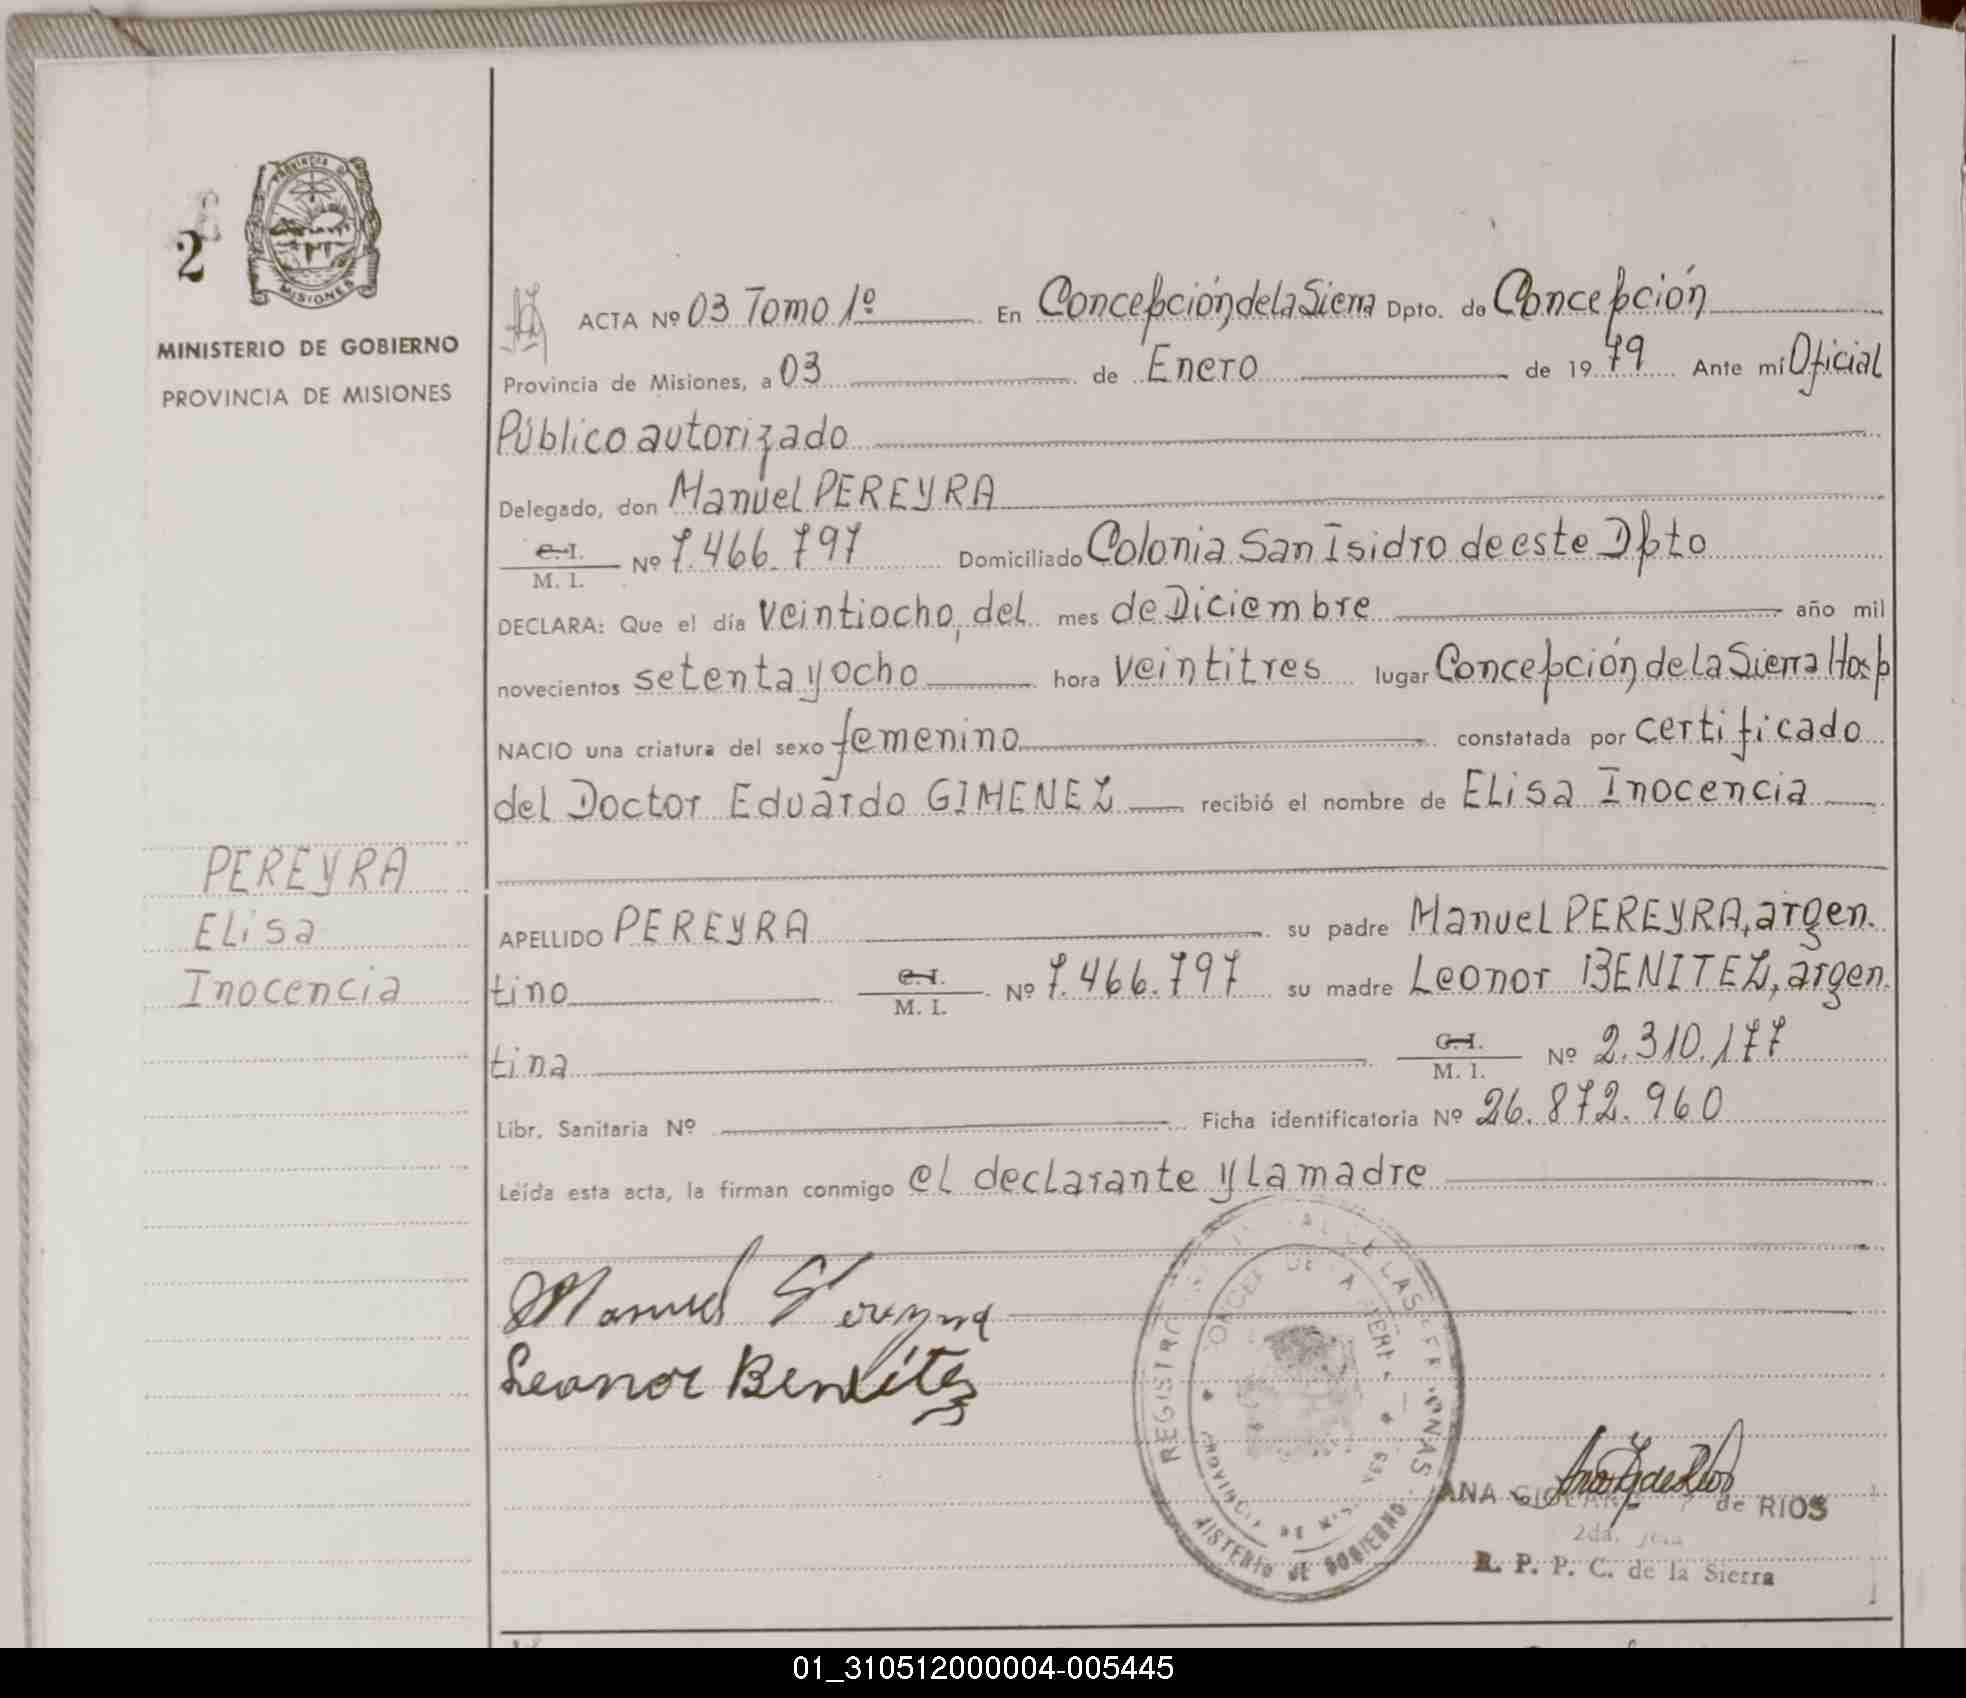 2
PROVINCIA DE
MISIONES
MINISTERIO DE GOBIERNO
PROVINCIA DE MISIONES
PEREYRA
Elisa
Inocencia
ACTA Nº 03 Tomo 1º En Concepción de la Sierra Dpto. de Concepción
Provincia de Misiones, a 03 de Enero de 1979 Ante mi Oficial
Público autorizado
Delegado, don Manuel PEREYRA
C. I. M. I. Nº 7.466.797 Domiciliado Colonia San Isidro de este Dpto
DECLARA: Que el día veintiocho, del mes de Diciembre año mil
novecientos setenta y ocho hora veintitres lugar Concepción de la Sierra Hosp
NACIO una criatura del sexo femenino constatada por certificado
del Doctor Eduardo GIMENEZ recibió el nombre de Elisa Inocencia
APELLIDO PEREYRA su padre Manuel PEREYRA, argen.
tino C. I. M. I. Nº 7.466.797 su madre Leonor BENITEZ, argen.
tina C. I. M. I. Nº 2.310.177
Libr. Sanitaria Nº Ficha identificatoria Nº 26.872.960
Léida esta acta, la firman conmigo el declarante y la madre
Manuel Pereyra
Leonor Benítez
REGISTRO DE LAS PERSONAS
PROVINCIA DE MISIONES
MINISTERIO DE GOBIERNO
ANA de RIOS
2da. Jefa
R. P. P. C. de la Sierra
01_310512000004-005445